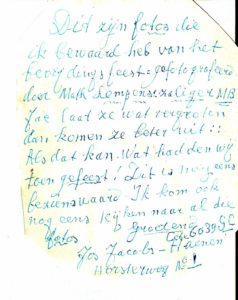 Dit zijn fotos die
ik bewaard heb van het
bevrydingsfeest = gefotografeerd
door Math Lempens. zaliger MB
Jae laat ze wat vergroten
dan komen ze beter uit ::
Als dat kan. Wat had den wij
toen gefeest! Dit is nog eens
bezienswaard Ik kom ook
nog eens kijken naar al die
fotos Groetend
Jos Jacobs - Haenen
Horsterweg No 1